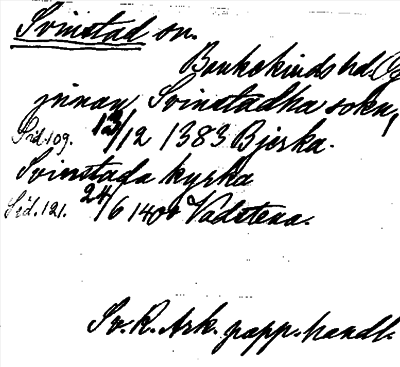 Svinstad sn.
Bankekinds hd. Ög
jnnan Svinstadha sokn,
Sid. 109. 13/12 1383 Bjerka.
Svinstada kyrka
Sid. 121. 24/6 1400 Vadstena.
Sv. R. Ark. papp. handl.